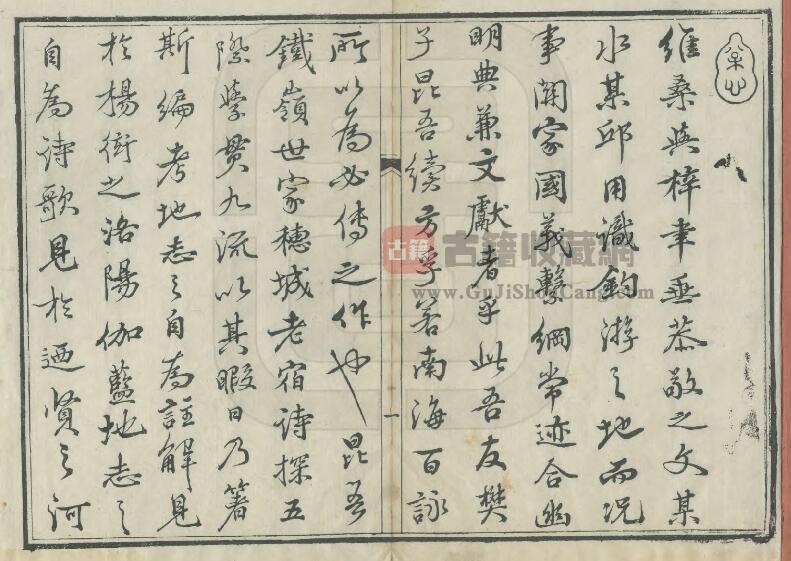 維桑與梓聿垂恭敬之文某
水某邱用識釣游之地而況
事關家國義繫綱常迹合幽
明典兼文獻者乎此吾友樊
子昆吾續方孚若南海百詠
所以為必傳之作也昆吾
鐵嶺世家穗城老宿詩探五
際學貫九流以其暇日乃著
斯編考地志之自為註解見
於楊衒之洛陽伽藍地志之
自為詩歌見於迺賢之河
一
古籍
古籍收藏網
www.GuJiShouCang.com